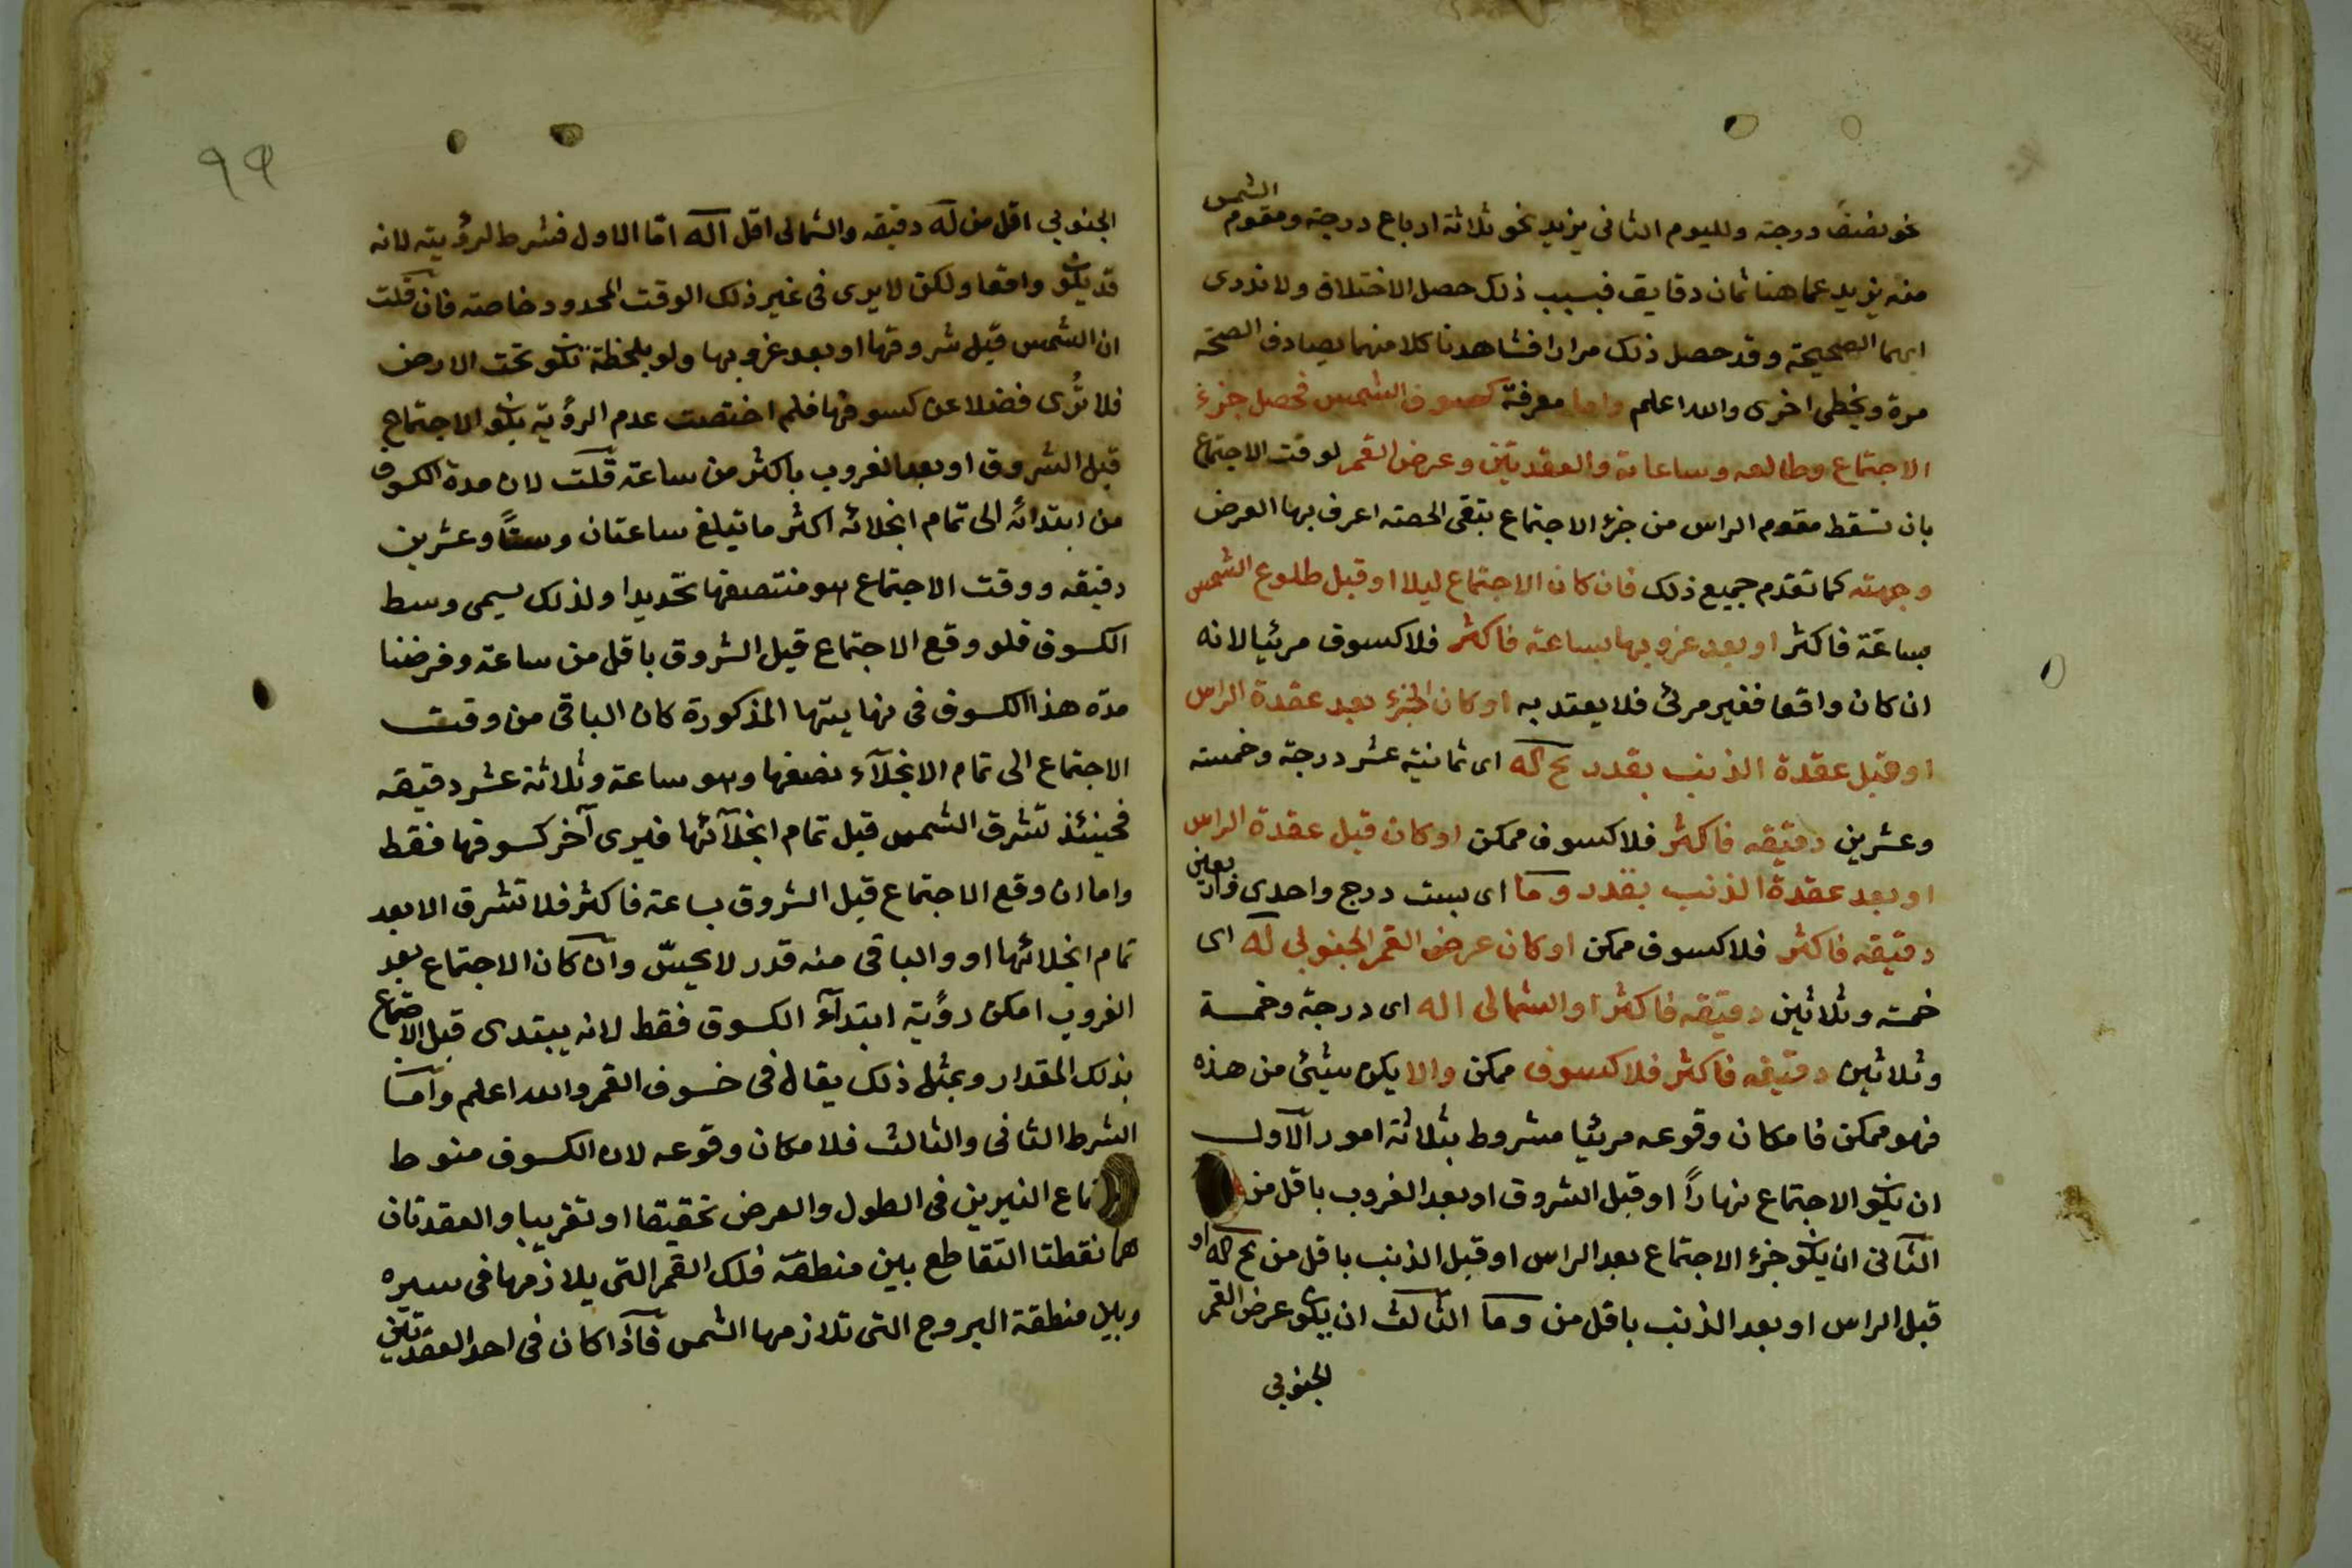 نحو نصف درجة ولليوم الثانى يزيد نحو ثلاثة ارباع درجة ومقوم الشمس
منه يزيد عما هنا ثمان دقايق فبسبب ذلك حصل الاختلاف ولا ندرى
ايهما الصحيحة وقد حصل ذلك مرارا فشاهدنا كلا منهما يصادف الصحة
مرة ويخطى اخرى والله اعلم واما معرفة كسوف الشمس فحصل جزء
الاجتماع وطالعه وساعاته والعقدتين وعرض القمر لوقت الاجتماع
بان تسقط مقوم الراس من جزء الاجتماع تبقى الحصة اعرف بها العرض
وجهته كما تقدم جميع ذلك فان كان الاجتماع ليلا او قبل طلوع الشمس
بساعة فاكثر او بعد غروبها بساعة فاكثر فلا كسوف مرئيا لانه
ان كان واقعا فغير مرئى فلا يعتد به او كان الجزء بعد عقدة الراس
او قبل عقدة الذنب بقدر يح كه اى ثمانية عشر درجة وخمسة
وعشرين دقيقه فاكثر فلا كسوف ممكن او كان قبل عقدة الراس
او بعد عقدة الذنب بقدر و ما اى بست درج واحدى واربعين
دقيقه فاكثر فلا كسوف ممكن او كان عرض القمر الجنوبى له اى
خمسة وثلاثين دقيقه فاكثر او الشمالى ا له اى درجة وخمسة
وثلاثين دقيقه فاكثر فلا كسوف ممكن والا يكن شيئى من هذه
فهو ممكن فامكان وقوعه مرئيا مشروط بثلاثة امور الاول
ان يكون الاجتماع نهاراً او قبل الشروق او بعد الغروب باقل من
الثانى ان يكون جزء الاجتماع بعد الراس او قبل الذنب باقل من يح كه او
قبل الراس او بعد الذنب باقل من و ما الثالث ان يكون عرض القمر
الجنوبى
٩٩
الجنوبي اقل من له دقيقه والشمالى اقل ا له امّا الاول فشرط لرؤيته لانه
قد يكون واقعا ولكن لا يرى فى غير ذلك الوقت المحدود خاصة فان قلت
ان الشمس قبل شروقها او بعد غروبها ولو بلحظة تكون تحت الارض
فلا تُرى فضلا عن كسوفها فلم اختصت عدم الرؤية بكون الاجتماع
قبل الشروق او بعد الغروب باكثر من ساعة قلت لان مدة الكسوف
من ابتدائه الى تمام انجلائه اكثر ما تبلغ ساعتان وستاً وعشرين
دقيقه ووقت الاجتماع هو منتصفها تحديدا ولذلك يسمى وسط
الكسوف فلو وقع الاجتماع قبل الشروق باقل من ساعة وفرضنا
مدّة هذا الكسوف فى نهايتها المذكورة كان الباقى من وقت
الاجتماع الى تمام الانجلآء نصفها وهو ساعة وثلاثة عشر دقيقه
فحينئذ تشرق الشمس قبل تمام انجلآئها فيرى آخر كسوفها فقط
واما ان وقع الاجتماع قبل الشروق بساعة فاكثر فلا تشرق الا بعد
تمام انجلائها او والباقى منه قدر لا يحسّ وان كان الاجتماع بعد
الغروب امكن رؤية ابتدآء الكسوف فقط لانه يبتدى قبل الاجتماع
بذلك المقدار وبمثل ذلك يقال فى خسوف القمر والله اعلم وامّا
الشرط الثانى والثالث فلامكان وقوعه لان الكسوف منوط
ماع النيرين فى الطول والعرض تحقيقا او تقريبا والعقدتان
هما نقطتا التقاطع بين منطقة فلك القمر التى يلازمها فى سيره
وبين منطقة البروج التى تلازمها الشمس فاذا كان فى احد العقدتين